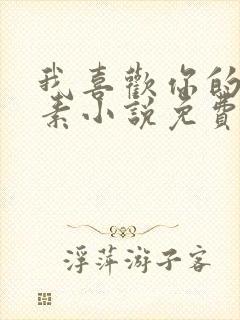 我喜歡你的
素小說免費
浮萍游子客